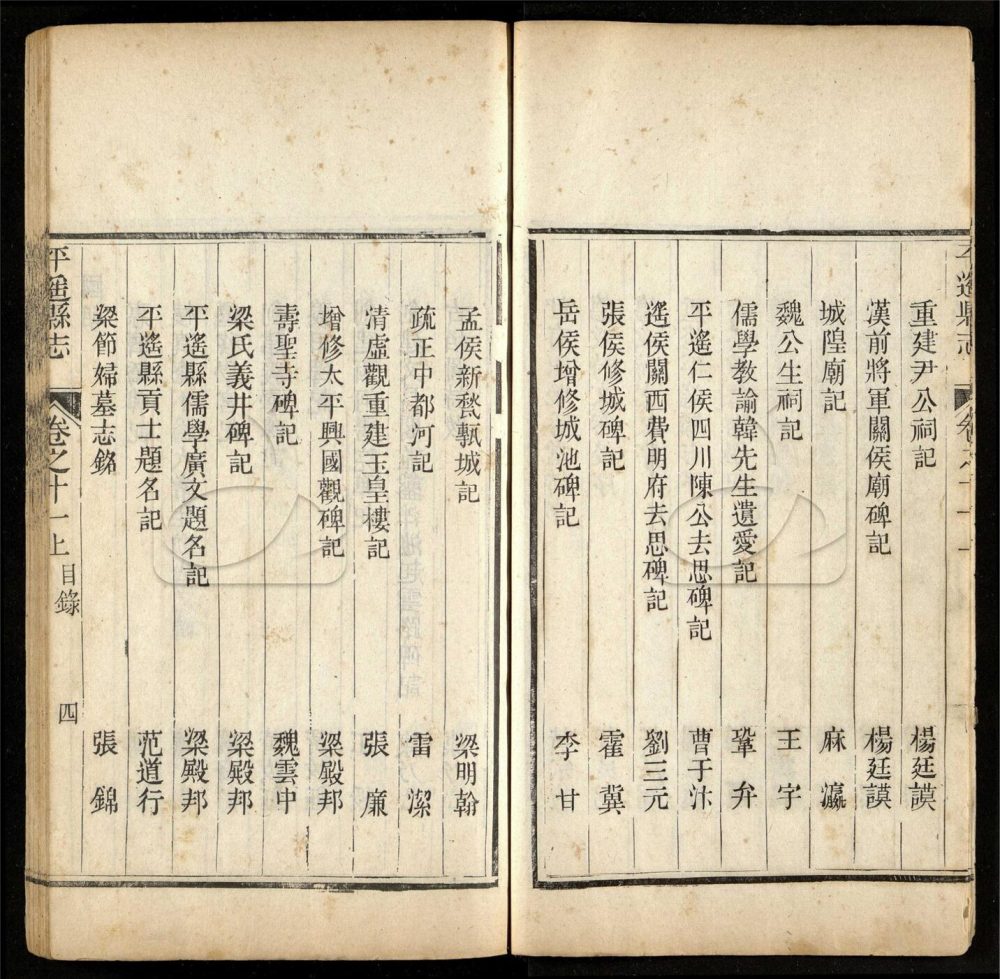 平遙縣志
重建尹公祠記 楊廷謨
漢前將軍關侯廟碑記 楊廷謨
城隍廟記 麻瀛
魏公生祠記 王宇
儒學教諭韓先生遺愛記 鞏弁
平遙仁侯四川陳公去思碑記 曹于汴
遙侯關西費明府去思碑記 劉三元
張侯修城碑記 霍冀
岳侯增修城池碑記 李甘
孟侯新甃甎城記 梁明翰
疏正中都河記 雷潔
清虛觀重建玉皇樓記 張廉
增修太平興國觀碑記 梁殿邦
壽聖寺碑記 魏雲中
梁氏義井碑記 梁殿邦
平遙縣儒學廣文題名記 梁殿邦
平遙縣貢士題名記 范道行
梁節婦墓志銘 張錦
平遙縣志 卷之十一上 目錄 四